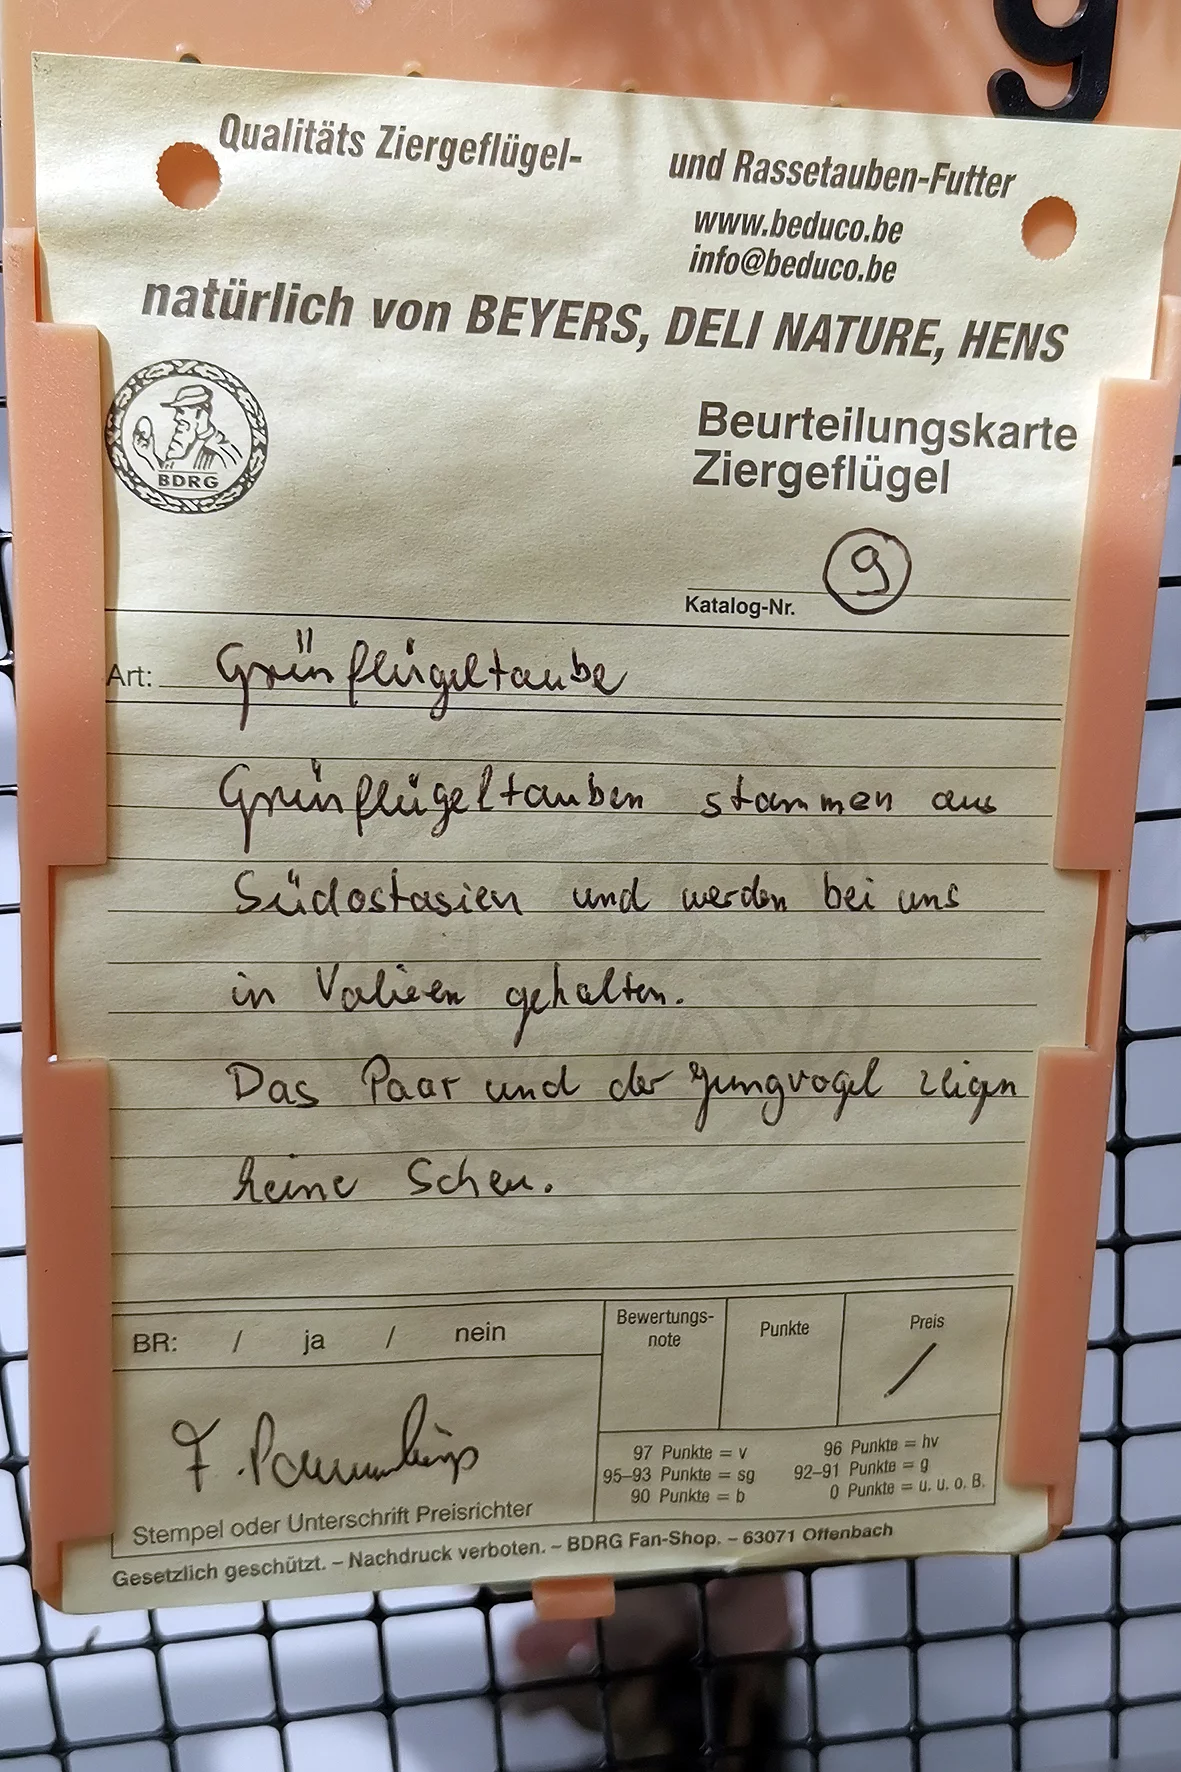 9
Qualitäts Ziergeflügel- und Rassetauben-Futter
www.beduco.be
info@beduco.be
natürlich von BEYERS, DELI NATURE, HENS
BDRG
Beurteilungskarte
Ziergeflügel
Katalog-Nr. 9
Art: Grünflügeltaube
Grünflügeltauben stammen aus
Südostasien und werden bei uns
in Volieren gehalten.
Das Paar und der Jungvogel zeigen
keine Scheu.
BR: / ja / nein
Bewertungs-
note
Punkte
Preis
/
97 Punkte = v
96 Punkte = hv
95–93 Punkte = sg
92–91 Punkte = g
90 Punkte = b
0 Punkte = u. u. o. B.
Stempel oder Unterschrift Preisrichter
Gesetzlich geschützt. – Nachdruck verboten. – BDRG Fan-Shop. – 63071 Offenbach